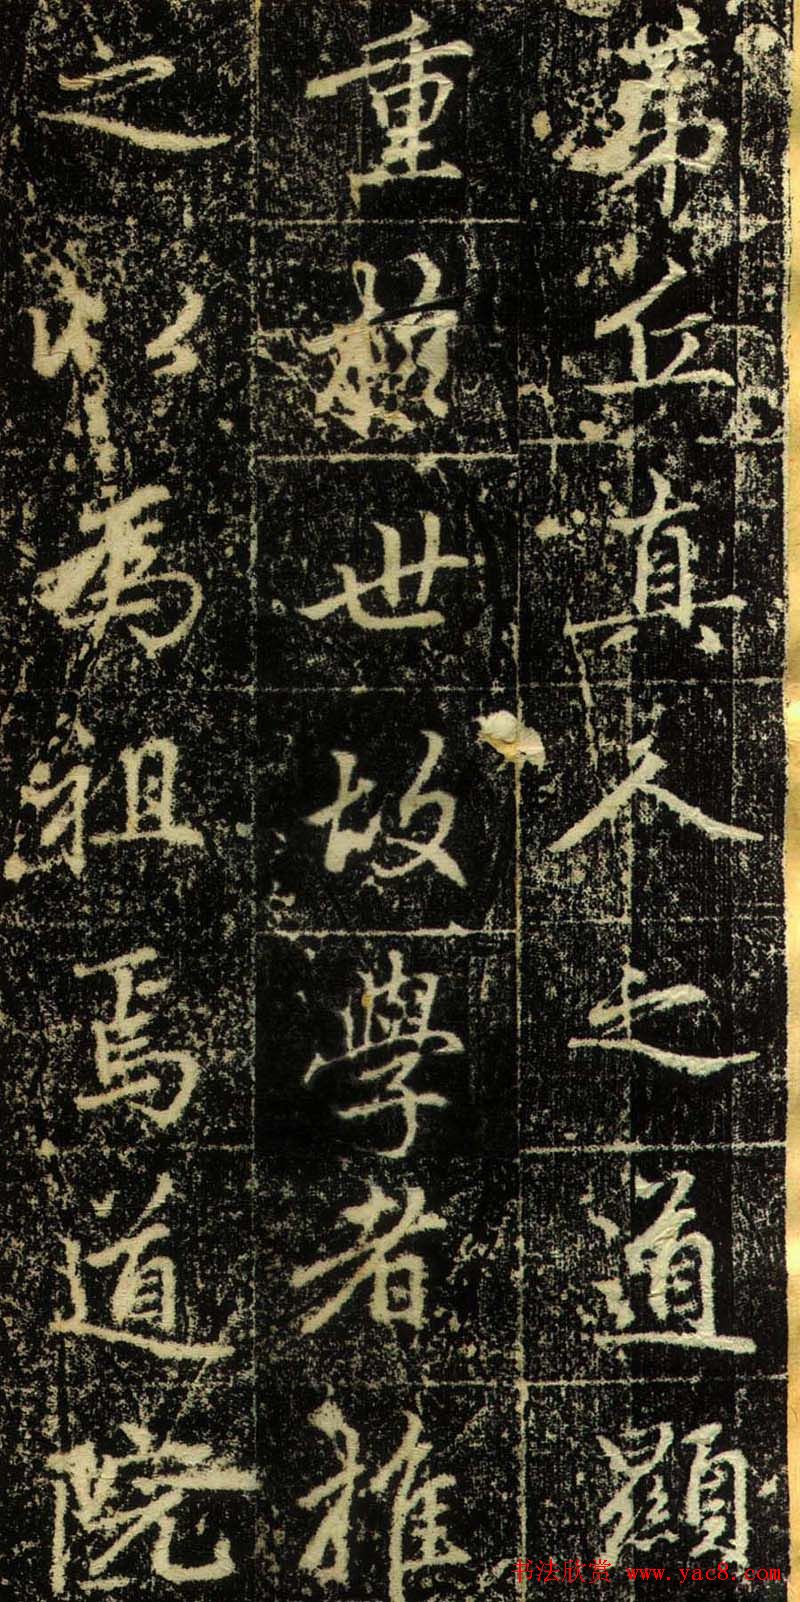 苐丘真人之道顯
重世故學者推
之以為祖焉道院
书法欣赏 www.yac8.com